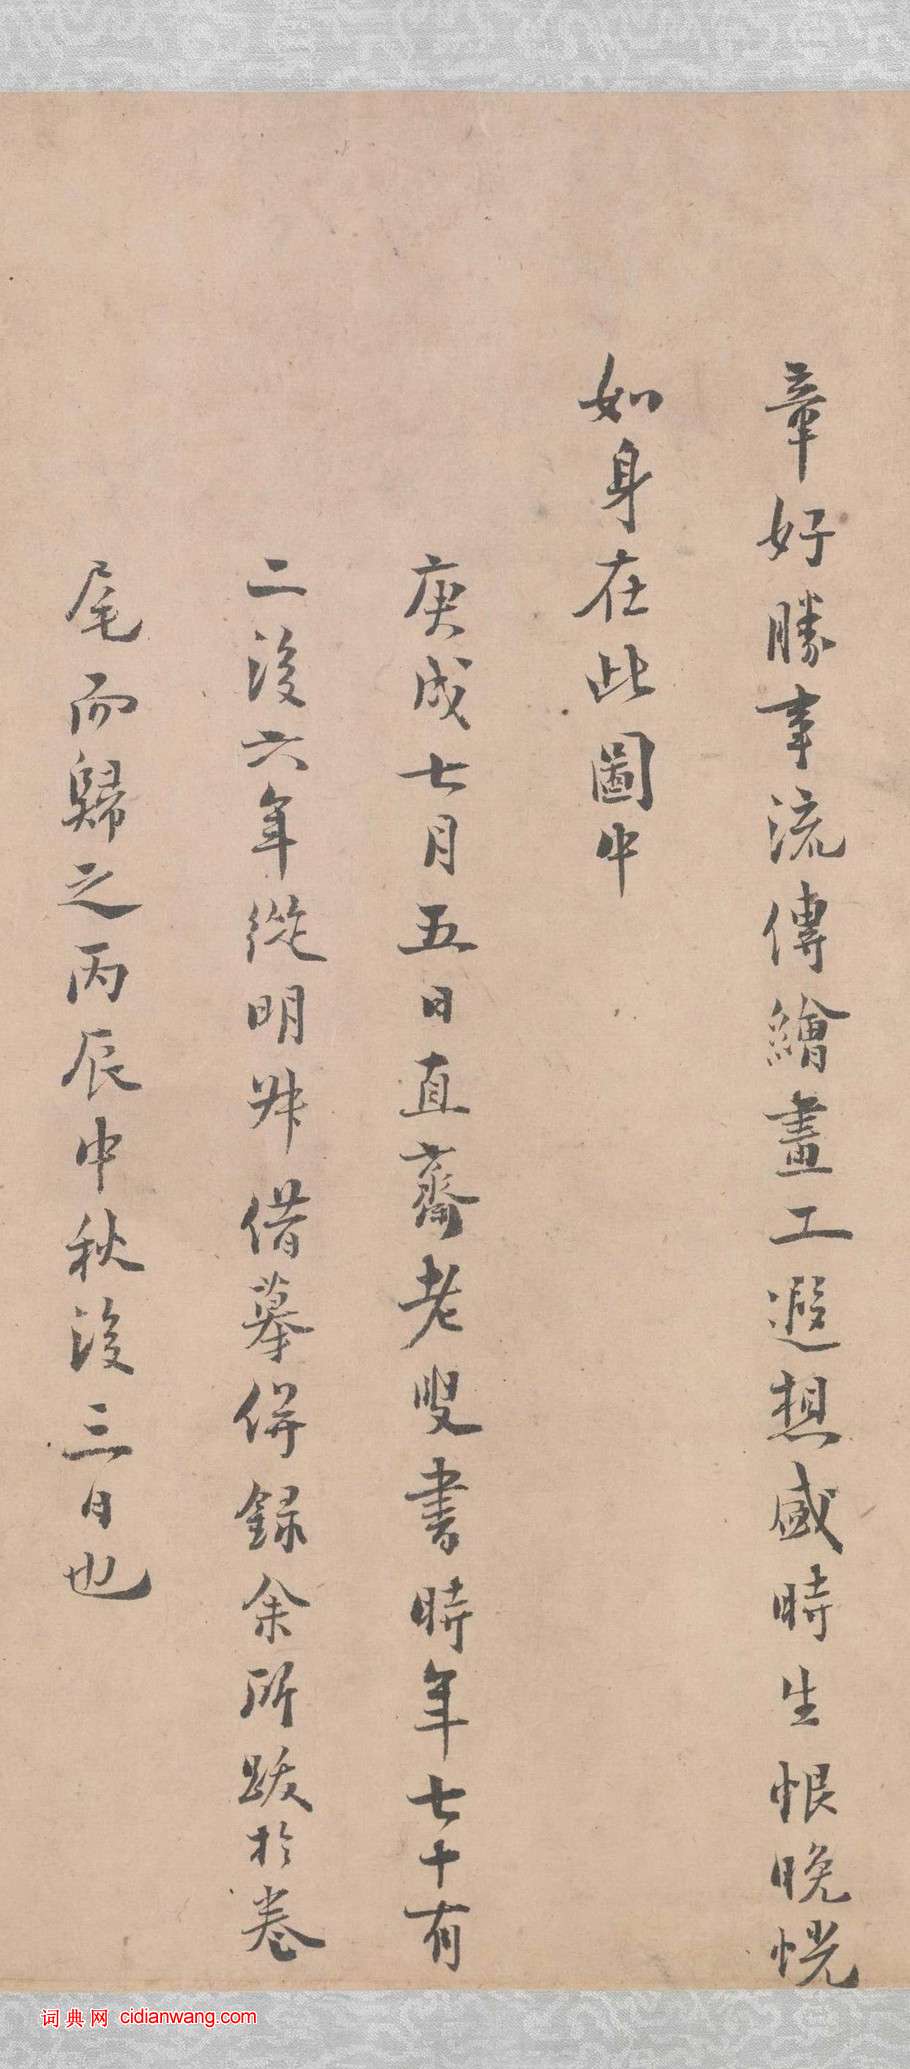 章好勝事流傳繪畫工遐想盛時生恨晚恍
如身在此圖中
庚戌七月五日直齋老叟書時年七十有
二後六年從明叔借摹併録余所跋於卷
尾而歸之丙辰中秋後三日也
词典网 cidianwang.com